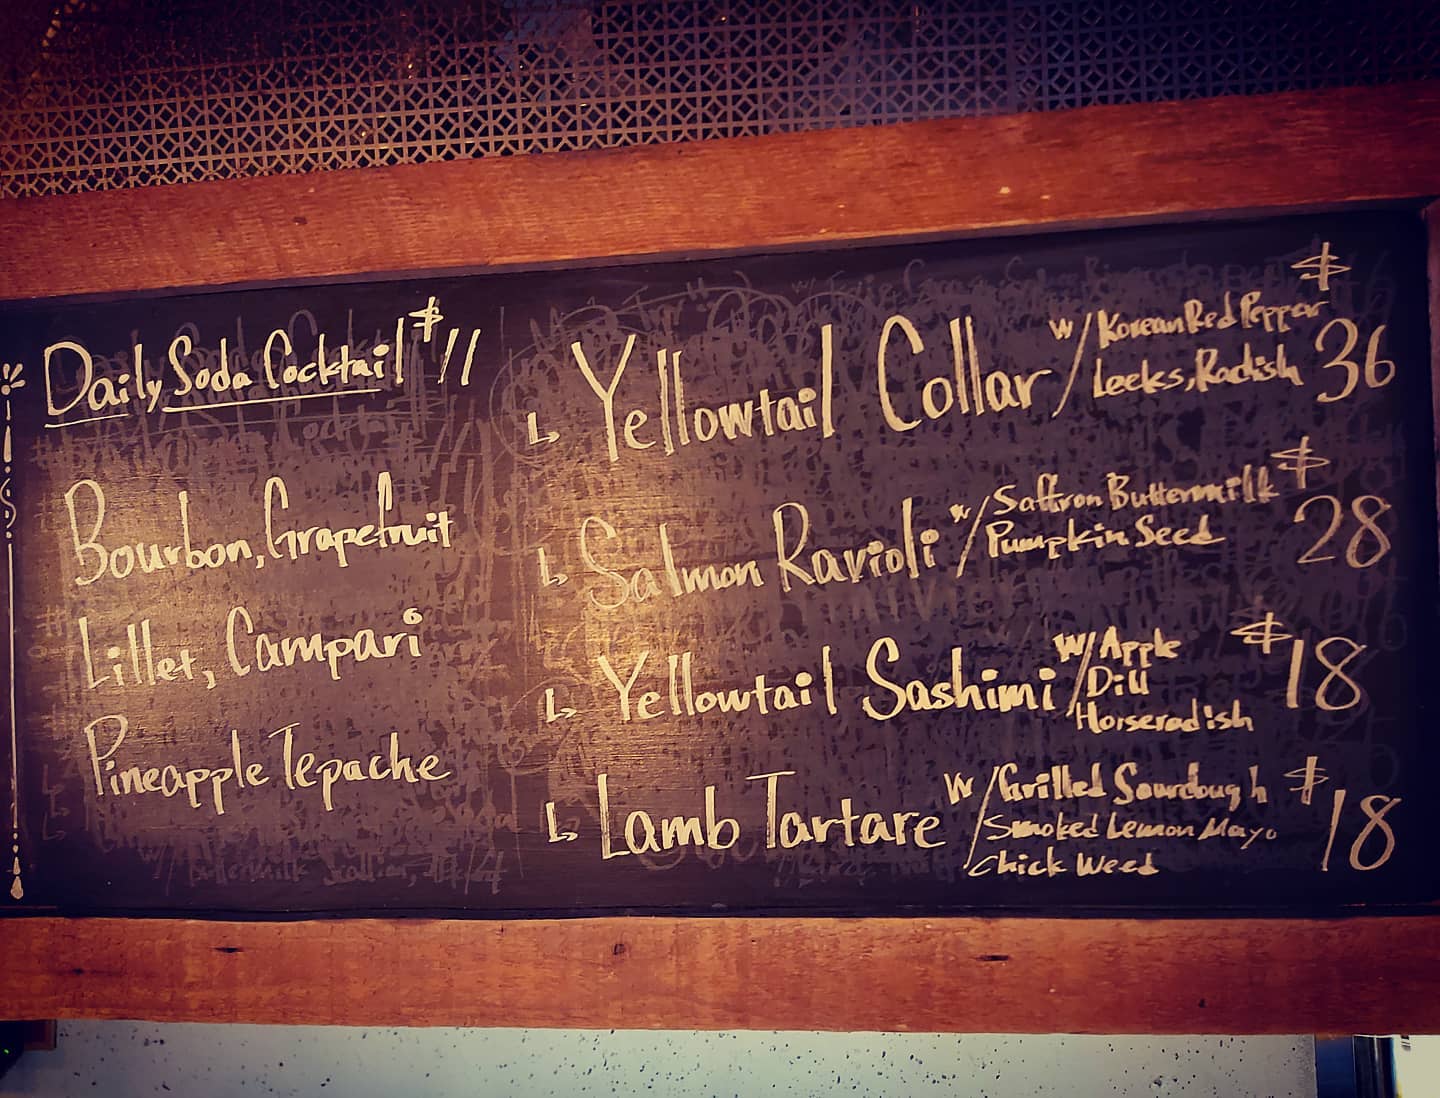 Daily Soda Cocktail $11
Bourbon, Grapefruit
Lillet, Campari
Pineapple Tepache
Yellowtail Collar w/ Korean Red Pepper $36
Leeks, Radish
Salmon Ravioli w/ Saffron Buttermilk $28
Pumpkin Seed
Yellowtail Sashimi w/ Apple $18
Dill
Horseradish
Lamb Tartare w/ Grilled Sourdough $18
Smoked Lemon Mayo
Chick Weed